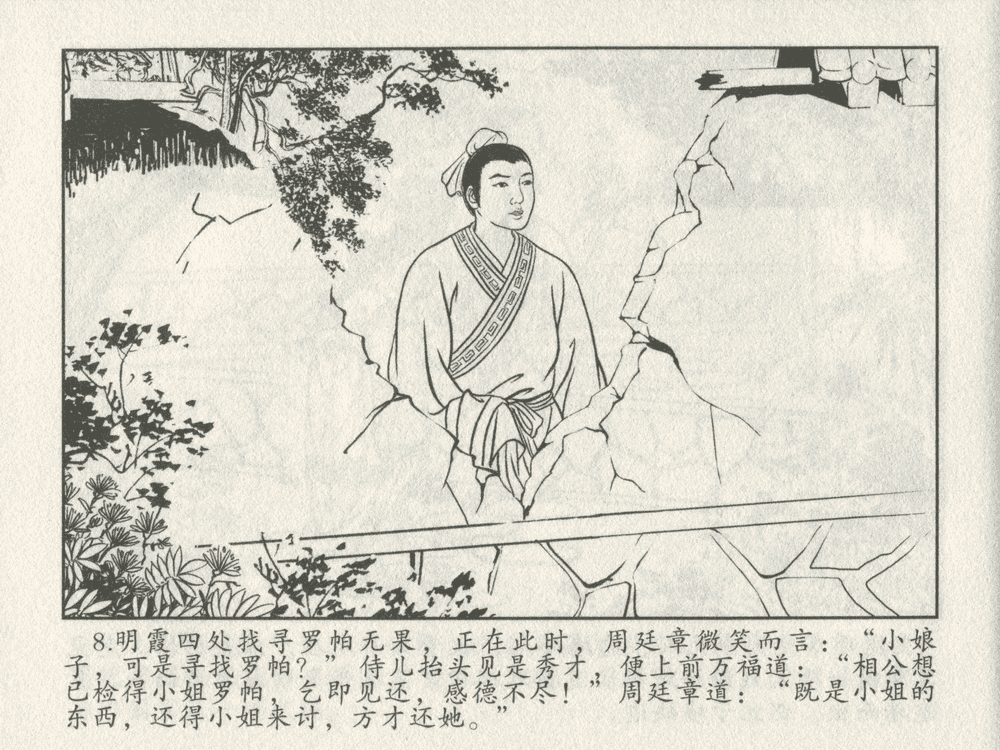 8.明霞四处找寻罗帕无果，正在此时，周廷章微笑而言：“小娘
子，可是寻找罗帕？”侍儿抬头见是秀才，便上前万福道：“相公想
已检得小姐罗帕，乞即见还，感德不尽！”周廷章道：“既是小姐的
东西，还得小姐来讨，方才还她。”